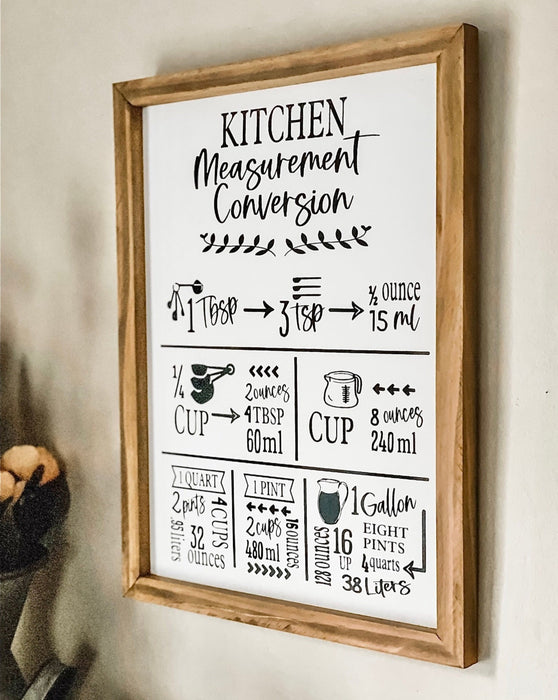 KITCHEN
Measurement
Conversion
1 Tbsp → 3 tsp → ½ ounce
15 ml
¼ CUP → 2 ounces
4 TBSP
60ml
CUP
8 ounces
240 ml
1 QUART
2 pints
4 CUPS
95 liters
32 ounces
1 PINT
2 cups
480 ml
16 ounces
1 Gallon
128 ounces
16 UP
EIGHT
PINTS
4 quarts
38 Liters